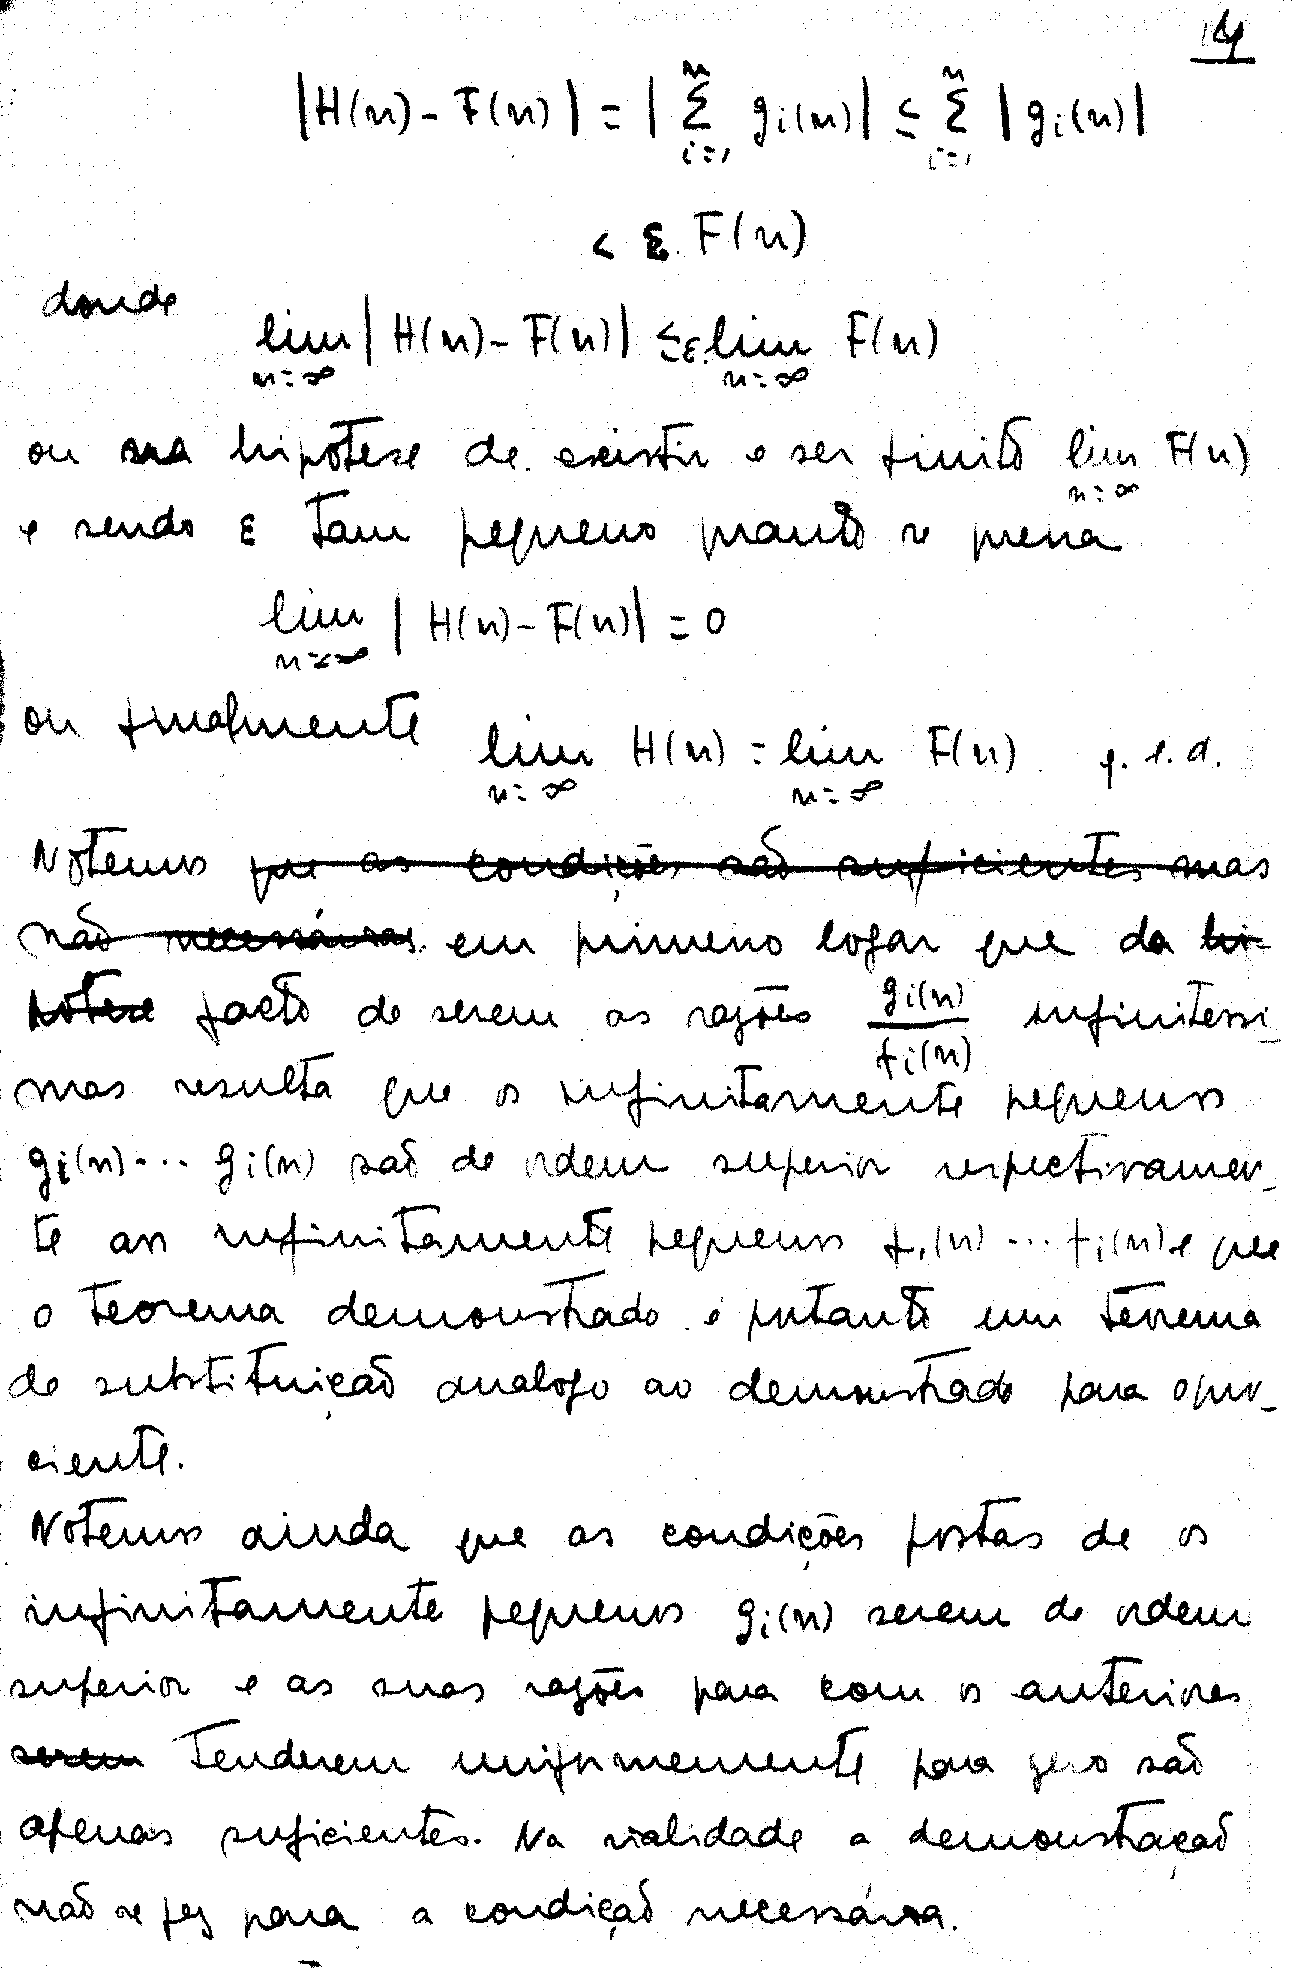 14
|H(n) - F(n)| = |∑_{i=1}^{n} g_i(n)| ≤ ∑_{i=1}^{n} |g_i(n)|
< ε. F(n)
donde
lim_{n=∞} |H(n) - F(n)| ≤ ε. lim_{n=∞} F(n)
ou na hipotese de existir e ser finito lim_{n=∞} F(n)
e sendo ε tam pequeno quanto se queira
lim_{n=∞} |H(n) - F(n)| = 0
ou finalmente lim_{n=∞} H(n) = lim_{n=∞} F(n) q. e. d.
Notemos que as condições são suficientes mas
não necessárias. em primeiro logar que do hi-
potese facto de serem as razões g_i(n)/f_i(n) infinitessi-
mas resulta que os infinitamente pequenos
g_i(n)... g_i(n) são de ordem superior respectivamen-
te aos infinitamente pequenos f_1(n) ... f_i(n) e que
o teorema demonstrado é portanto um teorema
de substituição analogo ao demonstrado para o quo-
ciente.
Notemos ainda que as condições postas de os
infinitamente pequenos g_i(n) serem de ordem
superior e as suas razões para com os anteriores
serem tenderem uniformemente para zero são
apenas suficientes. Na realidade a demonstração
não se fez para a condição necessária.